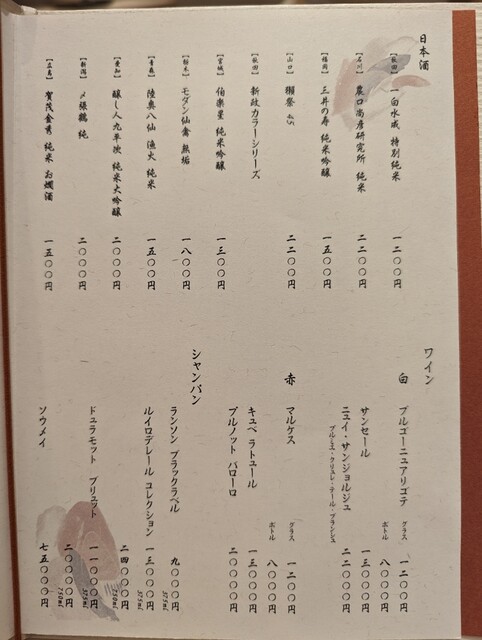 日本酒
【秋田】 一白水成 特別純米 一二〇〇円
【石川】 農口尚彦研究所 純米 二二〇〇円
【福岡】 三井の寿 純米吟醸 一五〇〇円
【山口】 獺祭 45 二二〇〇円
【秋田】 新政カラーシリーズ
【宮城】 伯楽星 純米吟醸 一三〇〇円
【栃木】 モダン仙禽 無垢 一八〇〇円
【青森】 陸奥八仙 漁火 純米 一五〇〇円
【愛知】 醸し人九平次 純米大吟醸 二〇〇〇円
【新潟】 〆張鶴 純 二〇〇〇円
【広島】 賀茂金秀 純米 お燗酒 一五〇〇円
ワイン
白 ブルゴーニュアリゴテ グラス 一二〇〇円
ボトル 八〇〇〇円
サンセール 一三〇〇〇円
ニュイ・サンジョルジュ 二二〇〇〇円
プルミエ・クリュレ・テール・ブランシュ
赤 マルケス グラス 一二〇〇円
ボトル 八〇〇〇円
キュベ ラトュール 一三〇〇〇円
ブルノット バローロ 二〇〇〇〇円
シャンパン
ランソン ブラックラベル 375ml 九〇〇〇円
ルイロデレール コレクション 375ml 一三〇〇〇円
750ml 二四〇〇〇円
ドュラモット ブリュット 375ml 一一〇〇〇円
750ml 二〇〇〇〇円
ソウメイ 七五〇〇〇円